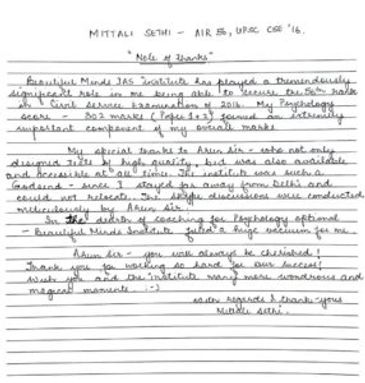 MITTALI SETHI - AIR 56, UPSC CSE '16.
"Note of Thanks"
Beautiful Minds IAS institute has played a tremendously
significant role in me being able to secure the 56th rank
in Civil Service Examination of 2016. My Psychology
score - 302 marks (Paper 1+2) formed an extremely
important component of my overall marks.
My special thanks to Arun Sir - who not only
designed Tests of high quality, but was also available
and accessible at all time. The institute was such a
Godsend - since I stayed far away from Delhi and
could not relocate. The Skype discussions were conducted
meticulously by Arun Sir.
In the dearth of coaching for Psychology optional
- Beautiful Minds Institute filled a huge vacuum for me.
Arun Sir - you will always be cherished!
Thank you for working so hard for our success!
Wish you and the institute many more wondrous and
magical moments. :-)
with regards & thank-yous
Mittali Sethi.